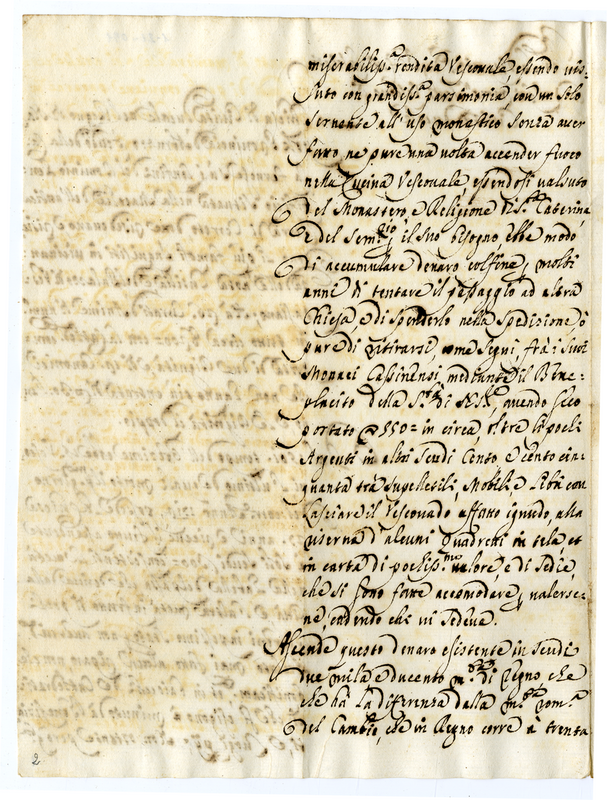 miserabiliss.a rendita Vescovale, essendo vis-
suto con grandiss.a parsimonia, con un solo
servente all' uso monastico senza aver
fatto ne pure una volta accender fuoco
nella Cucina Vescovale, essendosi valsuto
del Monastero, e Religione di S.ta Caterina
e del Sem.rio il suo bisogno, ebbe modo
di accumulare denaro col fine, molti
anni di tentare il passaggio ad altra
Chiesa, e di spenderlo nella spedizione ò
pure di ritirarsi, come seguì, frà i suoi
Monaci Cassinensi mediante il Bene=
placito della S.tà di N. S.re, quando seco
portato 550= in circa, oltre li pochi
Argenti in altri Scudi Cento e cento cin=
quanta trà supellettili, Mobili e Libri con
Lasciare il Vescovado affatto ignudo, alla
riserva d'alcuni Quadretti in tela et
in carta di pochiss.mo valore, e di Sedie,
che si sono fatte accomodare, valerse=
ne, vedendo chi vi sedeva.
Ascende questo denaro esistente in Scudi
due mila e ducento m.ta di Regno che
che hà la differenza dalla m.ta rom.a
del Cambio, che in Regno corre à trenta
2